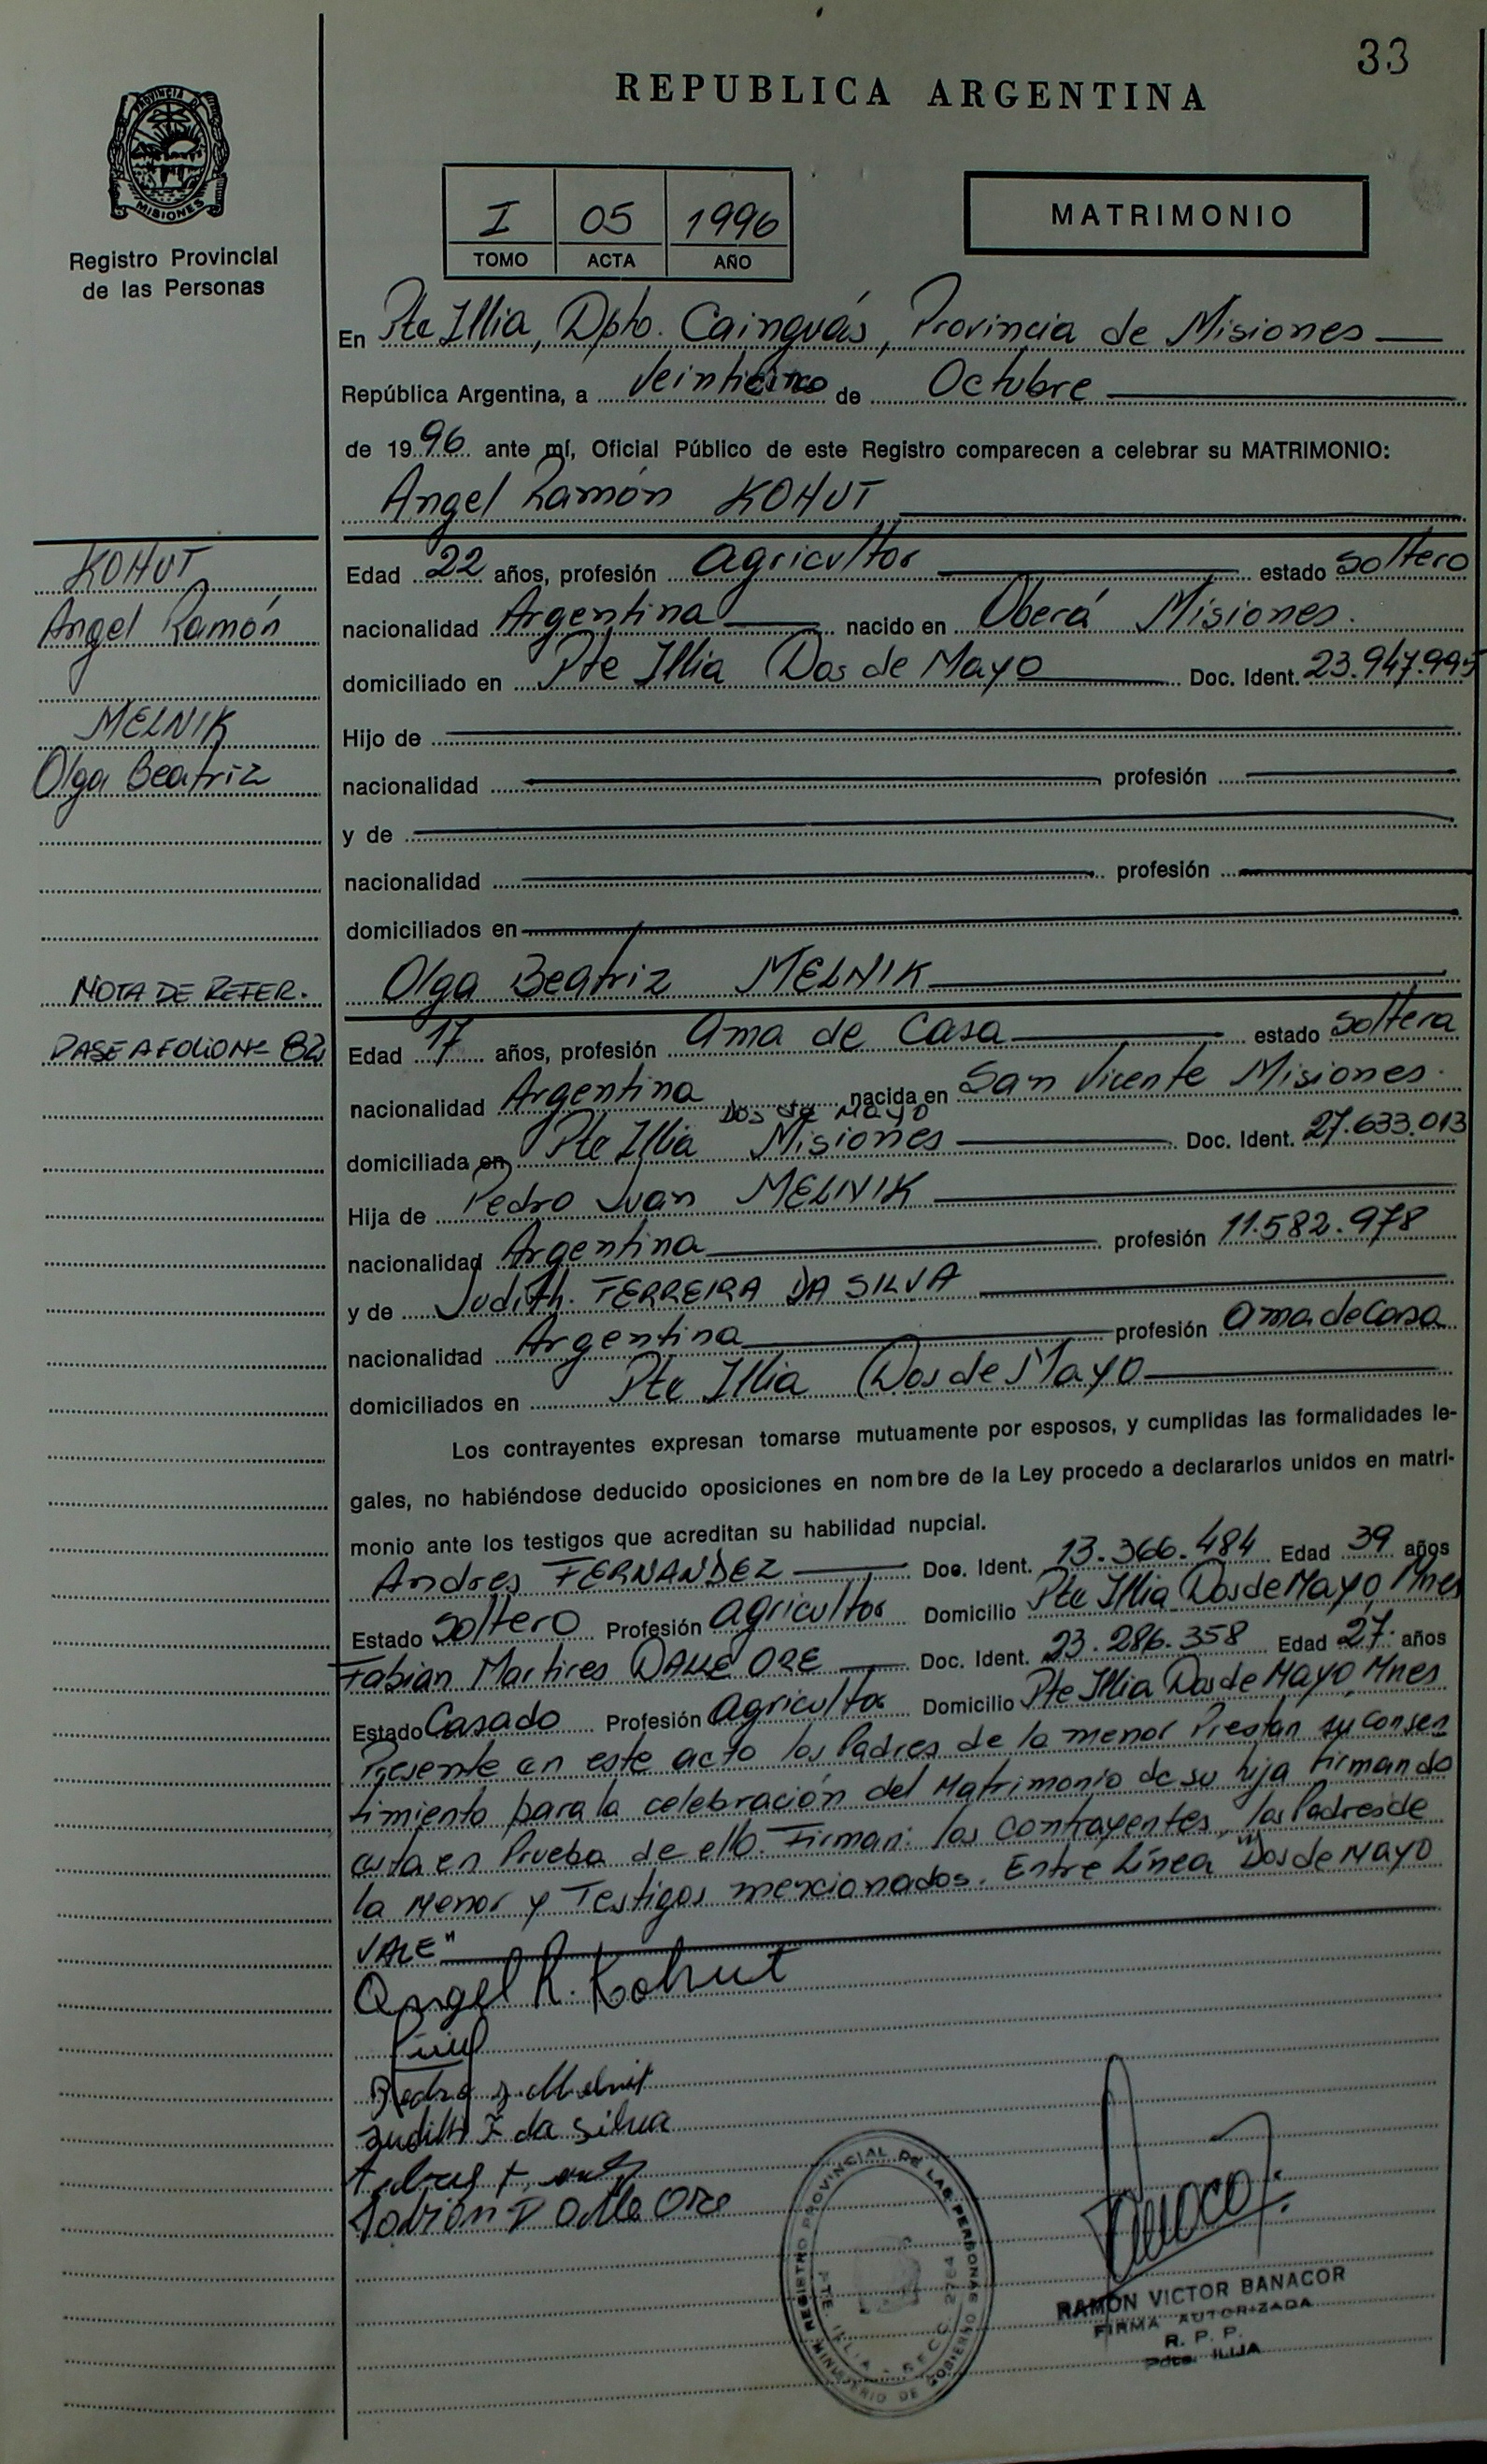 33
REPUBLICA ARGENTINA
PROVINCIA DE
MISIONES
Registro Provincial
de las Personas
I 05 1996
TOMO ACTA AÑO
MATRIMONIO
En Pte Illia, Dpto. Cainguás, Provincia de Misiones
República Argentina, a Veinticinco de Octubre
de 1996 ante mí, Oficial Público de este Registro comparecen a celebrar su MATRIMONIO:
Angel Ramón KOHUT
KOHUT
Angel Ramón
MELNIK
Olga Beatriz
NOTA DE REFER.
PASE A FOLIO Nº 82
Edad 22 años, profesión agricultor estado soltero
nacionalidad Argentina nacido en Oberá Misiones.
domiciliado en Pte Illia Dos de Mayo Doc. Ident. 23.947.995
Hijo de
nacionalidad profesión
y de
nacionalidad profesión
domiciliados en
Olga Beatriz MELNIK
Edad 17 años, profesión ama de Casa estado soltera
nacionalidad Argentina nacida en San Vicente Misiones.
Dos de Mayo
domiciliada en Pte Illia Misiones Doc. Ident. 27.633.013
Hija de Pedro Juan MELNIK
nacionalidad Argentina profesión 11.582.978
y de Judith. FERREIRA DA SILVA
nacionalidad Argentina profesión ama de casa
domiciliados en Pte Illia Dos de Mayo
Los contrayentes expresan tomarse mutuamente por esposos, y cumplidas las formalidades le-
gales, no habiéndose deducido oposiciones en nombre de la Ley procedo a declararlos unidos en matri-
monio ante los testigos que acreditan su habilidad nupcial.
Andres FERNANDEZ Doc. Ident. 13.366.484 Edad 39 años
Estado Soltero Profesión agricultor Domicilio Pte Illia Dos de Mayo, Mnes
Fabian Martires DALLE ORE Doc. Ident. 23.286.358 Edad 27. años
Estado Casado Profesión agricultor Domicilio Pte Illia Dos de Mayo, Mnes
Presente en este acto los Padres de la menor Prestan su consen
timiento para la celebración del Matrimonio de su hija firmando
esta en Prueba de ello. Firman: los contrayentes, los Padres de
la Menor y Testigos mencionados. Entre Línea "Dos de Mayo
VALE"
Angel R. Kohut
Pedro J. Melnik
Judith F da Silva
Fabian D alle Ore
REGISTRO PROVINCIAL DE LAS PERSONAS
MINISTERIO DE GOBIERNO
PTE. ILLIA - SECC. 2764
RAMON VICTOR BANACOR
FIRMA AUTORIZADA
R. P. P.
Pdte. ILLIA